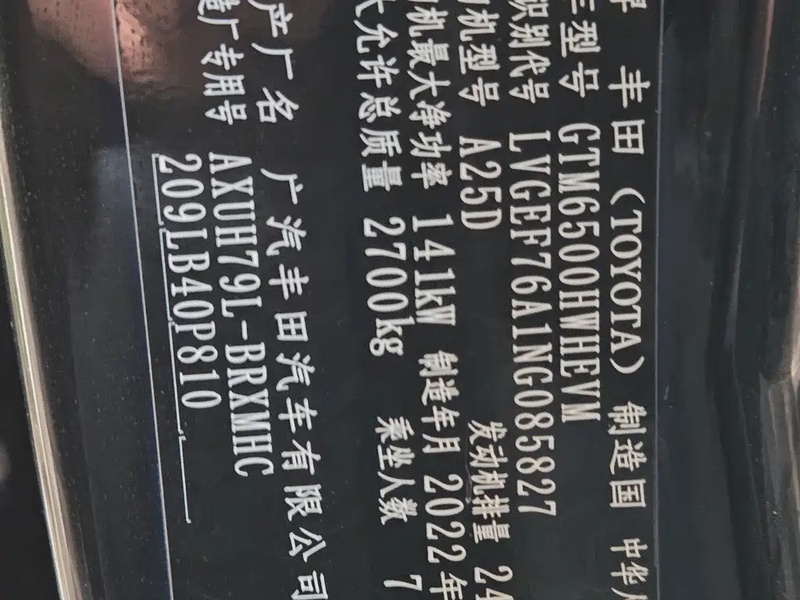 牌 丰田（TOYOTA） 制造国 中华人
车型号 GTM6500HWHEVM
识别代号 LVGEF76A1NG085827
机型号 A25D 发动机排量 24
机最大净功率 141kW 制造年月 2022年
大允许总质量 2700kg 乘坐人数 7
产厂名 广汽丰田汽车有限公司
造厂专用号 AXUH79L-BRXMHC
209LB40P810